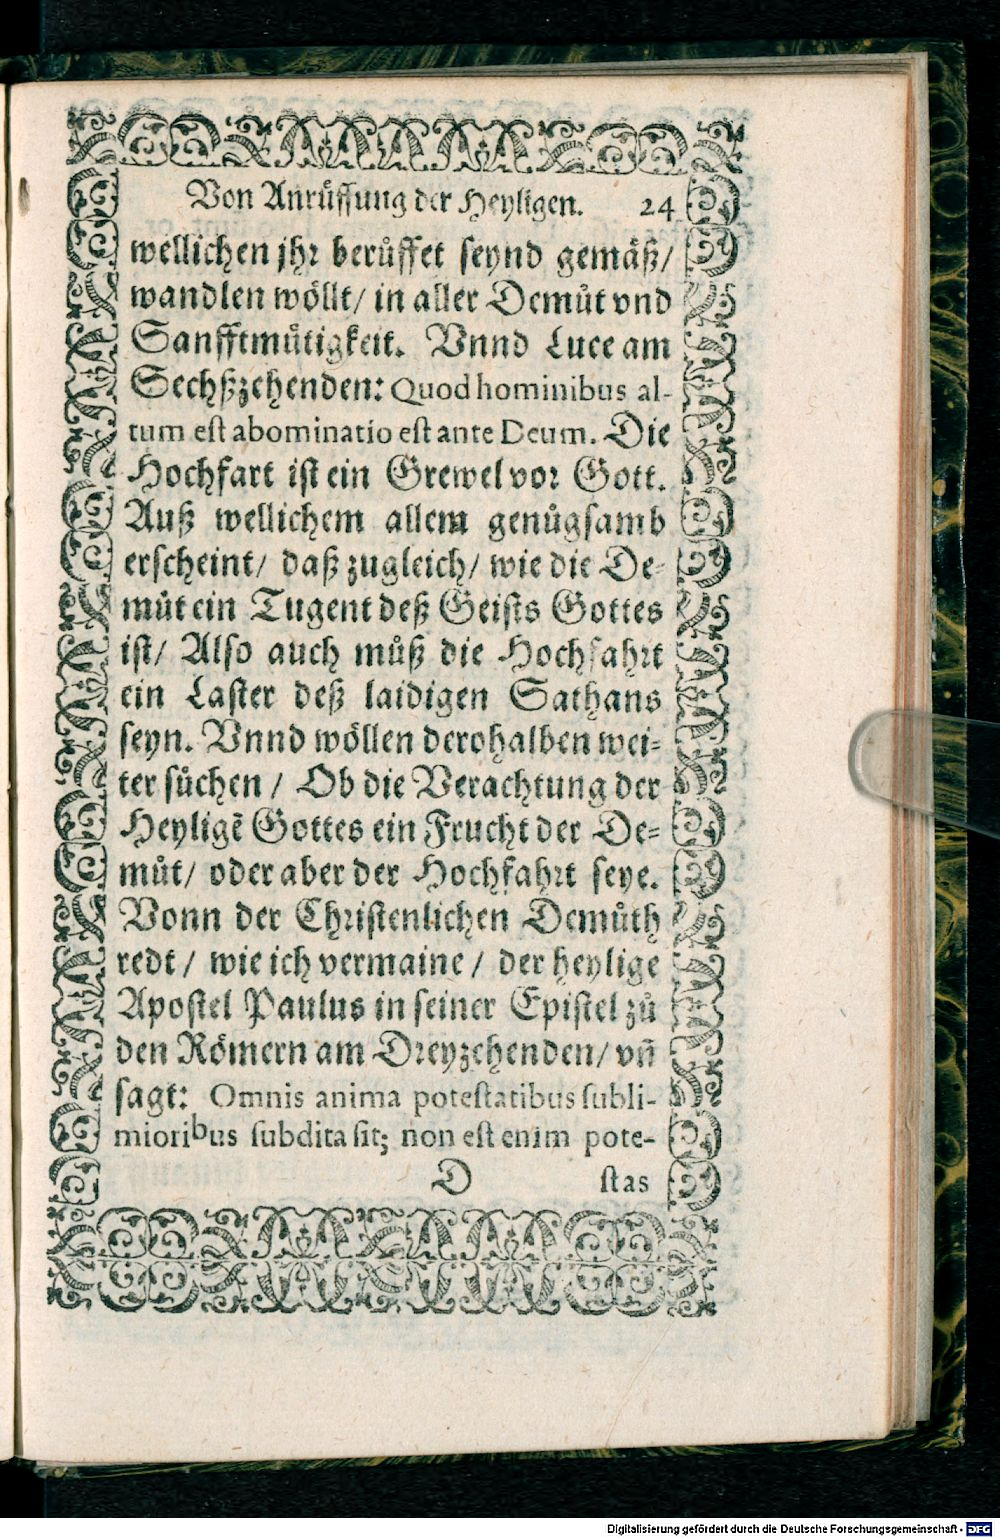 Von Anrůffung der Heyligen. 24
wellichen jhr berůffet seynd gemäß/
wandlen wöllt/ in aller Demůt vnd
Sanfftmůtigkeit. Vnnd Luce am
Sechßzehenden: Quod hominibus al-
tum est abominatio est ante Deum. Die
Hochfart ist ein Grewel vor Gott.
Auß wellichem allem genůgsamb
erscheint/ daß zugleich/ wie die De-
můt ein Tugent deß Geists Gottes
ist/ Also auch můß die Hochfahrt
ein Laster deß laidigen Sathans
seyn. Vnnd wöllen derohalben wei-
ter sůchen / Ob die Verachtung der
Heyligẽ Gottes ein Frucht der De-
můt/ oder aber der Hochfahrt seye.
Vonn der Christenlichen Demůth
redt / wie ich vermaine / der heylige
Apostel Paulus in seiner Epistel zů
den Römern am Dreyzehenden/ vñ
sagt: Omnis anima potestatibus subli-
mioribus subdita sit; non est enim pote-
D stas
Digitalisierung gefördert durch die Deutsche Forschungsgemeinschaft - DFG